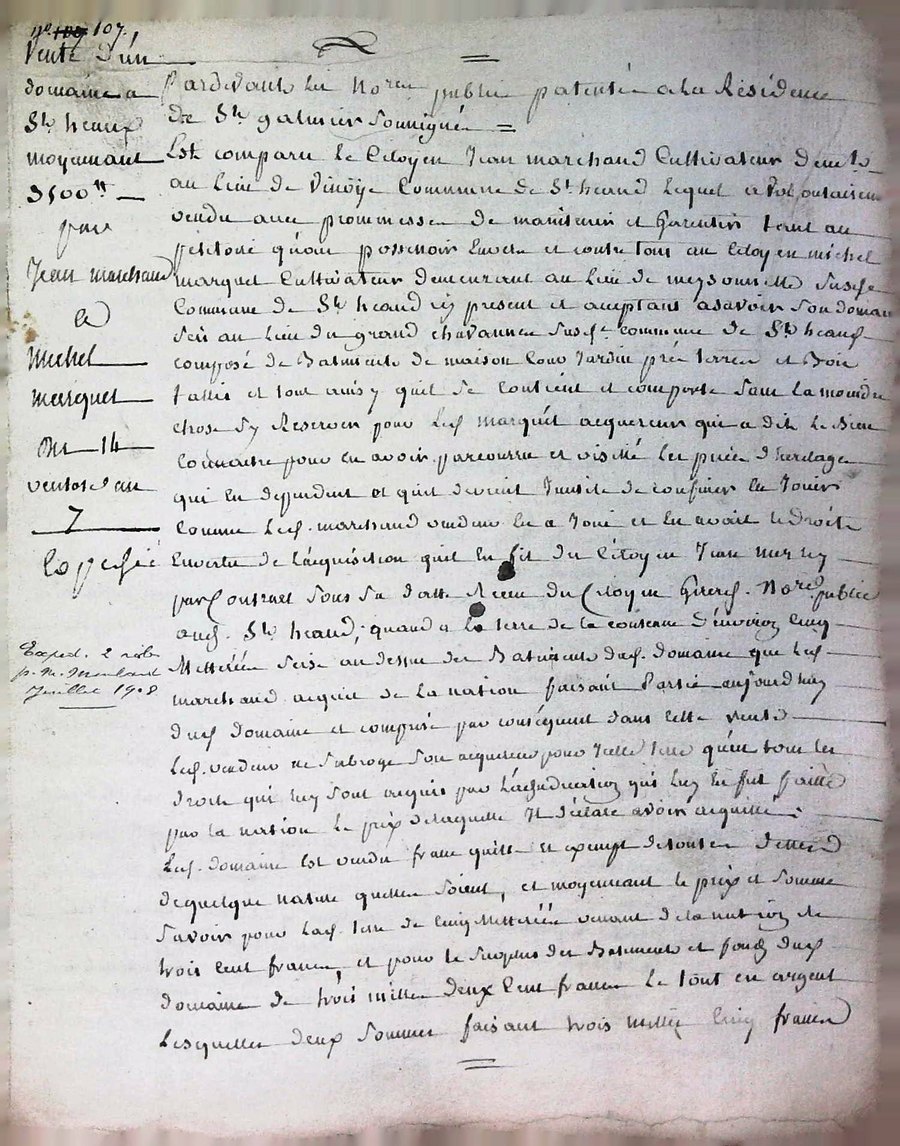 nº 107.
Vente d'un
domaine a
St heand
moyennant
3500 tt
par
Jean marchand
a
Michel
marquet
Du 14
ventose an
7
Exped. 2 roles
Juillet 1908
Pardevant Le Nore public patenté a La Résidence
De St galmier Soussigné =
Est comparu Le Citoyen Jean marchand Cultivateur demt
au Lieu de Commune de St heand Lequel a volontairem
vendu avec prommesse de maintenir et Garentir tant au
petitoire qu'au possessoir Envers et contre tous au Citoyen michel
marquet Cultivateur demeurant au Lieu de susd
Commune de St heand icy present et aceptant asavoir Son domaine
Scis au Lieu du grand chavannes Susd commune de St heand
composé de Batiments de maison Cour Jardin prés terres et Bois
taillis et tout ainsy quil Se Contient et comporte Sans La moindre
chose S'y Reserver pour Led marquet acquereur qui a dit Le Bien
Connaitre pour En avoir parcourru et visité Les pieces d'heritage
qui En dependent et quil devient Inutile de confiner En Jouir
Comme Led. marchand vendeur En a Joui et En avait Le Droit
Envertu de L'acquisition quil En fit du Citoyen Jean
par Contract Sous Sa datte Recu du Citoyen Nore public
aud. St heand, quand a La terre de La contenue D'environ Cinq
Metterées Scise au dessus des Batiments dud. domaine que Led
marchand acquit de La nation faisant Partie aujourdhuy
dud domaine et comprise par conséquent dans Cette vente
Led. vendeur Subroge Son acquereur pour Icelle terre qu'en tous Les
Droits qui Luy Sont acquis par L'adjudication qui Luy En fut faitte
par La nation Le prix de Laquelle Il déclare avoir acquitté.
Led. domaine Est vendu franc quitte et exempt de toutes Dettes
de quelque nature quelles Soient, et moyennant Le prix et Somme
Savoir pour Lad. terre de Cinq Metterées venant de La nation de
trois Cent francs, et pour Le Surplus des Batiments et fonds dud
domaine de trois mille deux Cent francs Le tout en argent
Lesquelles deux Sommes faisant trois mille Cinq francs